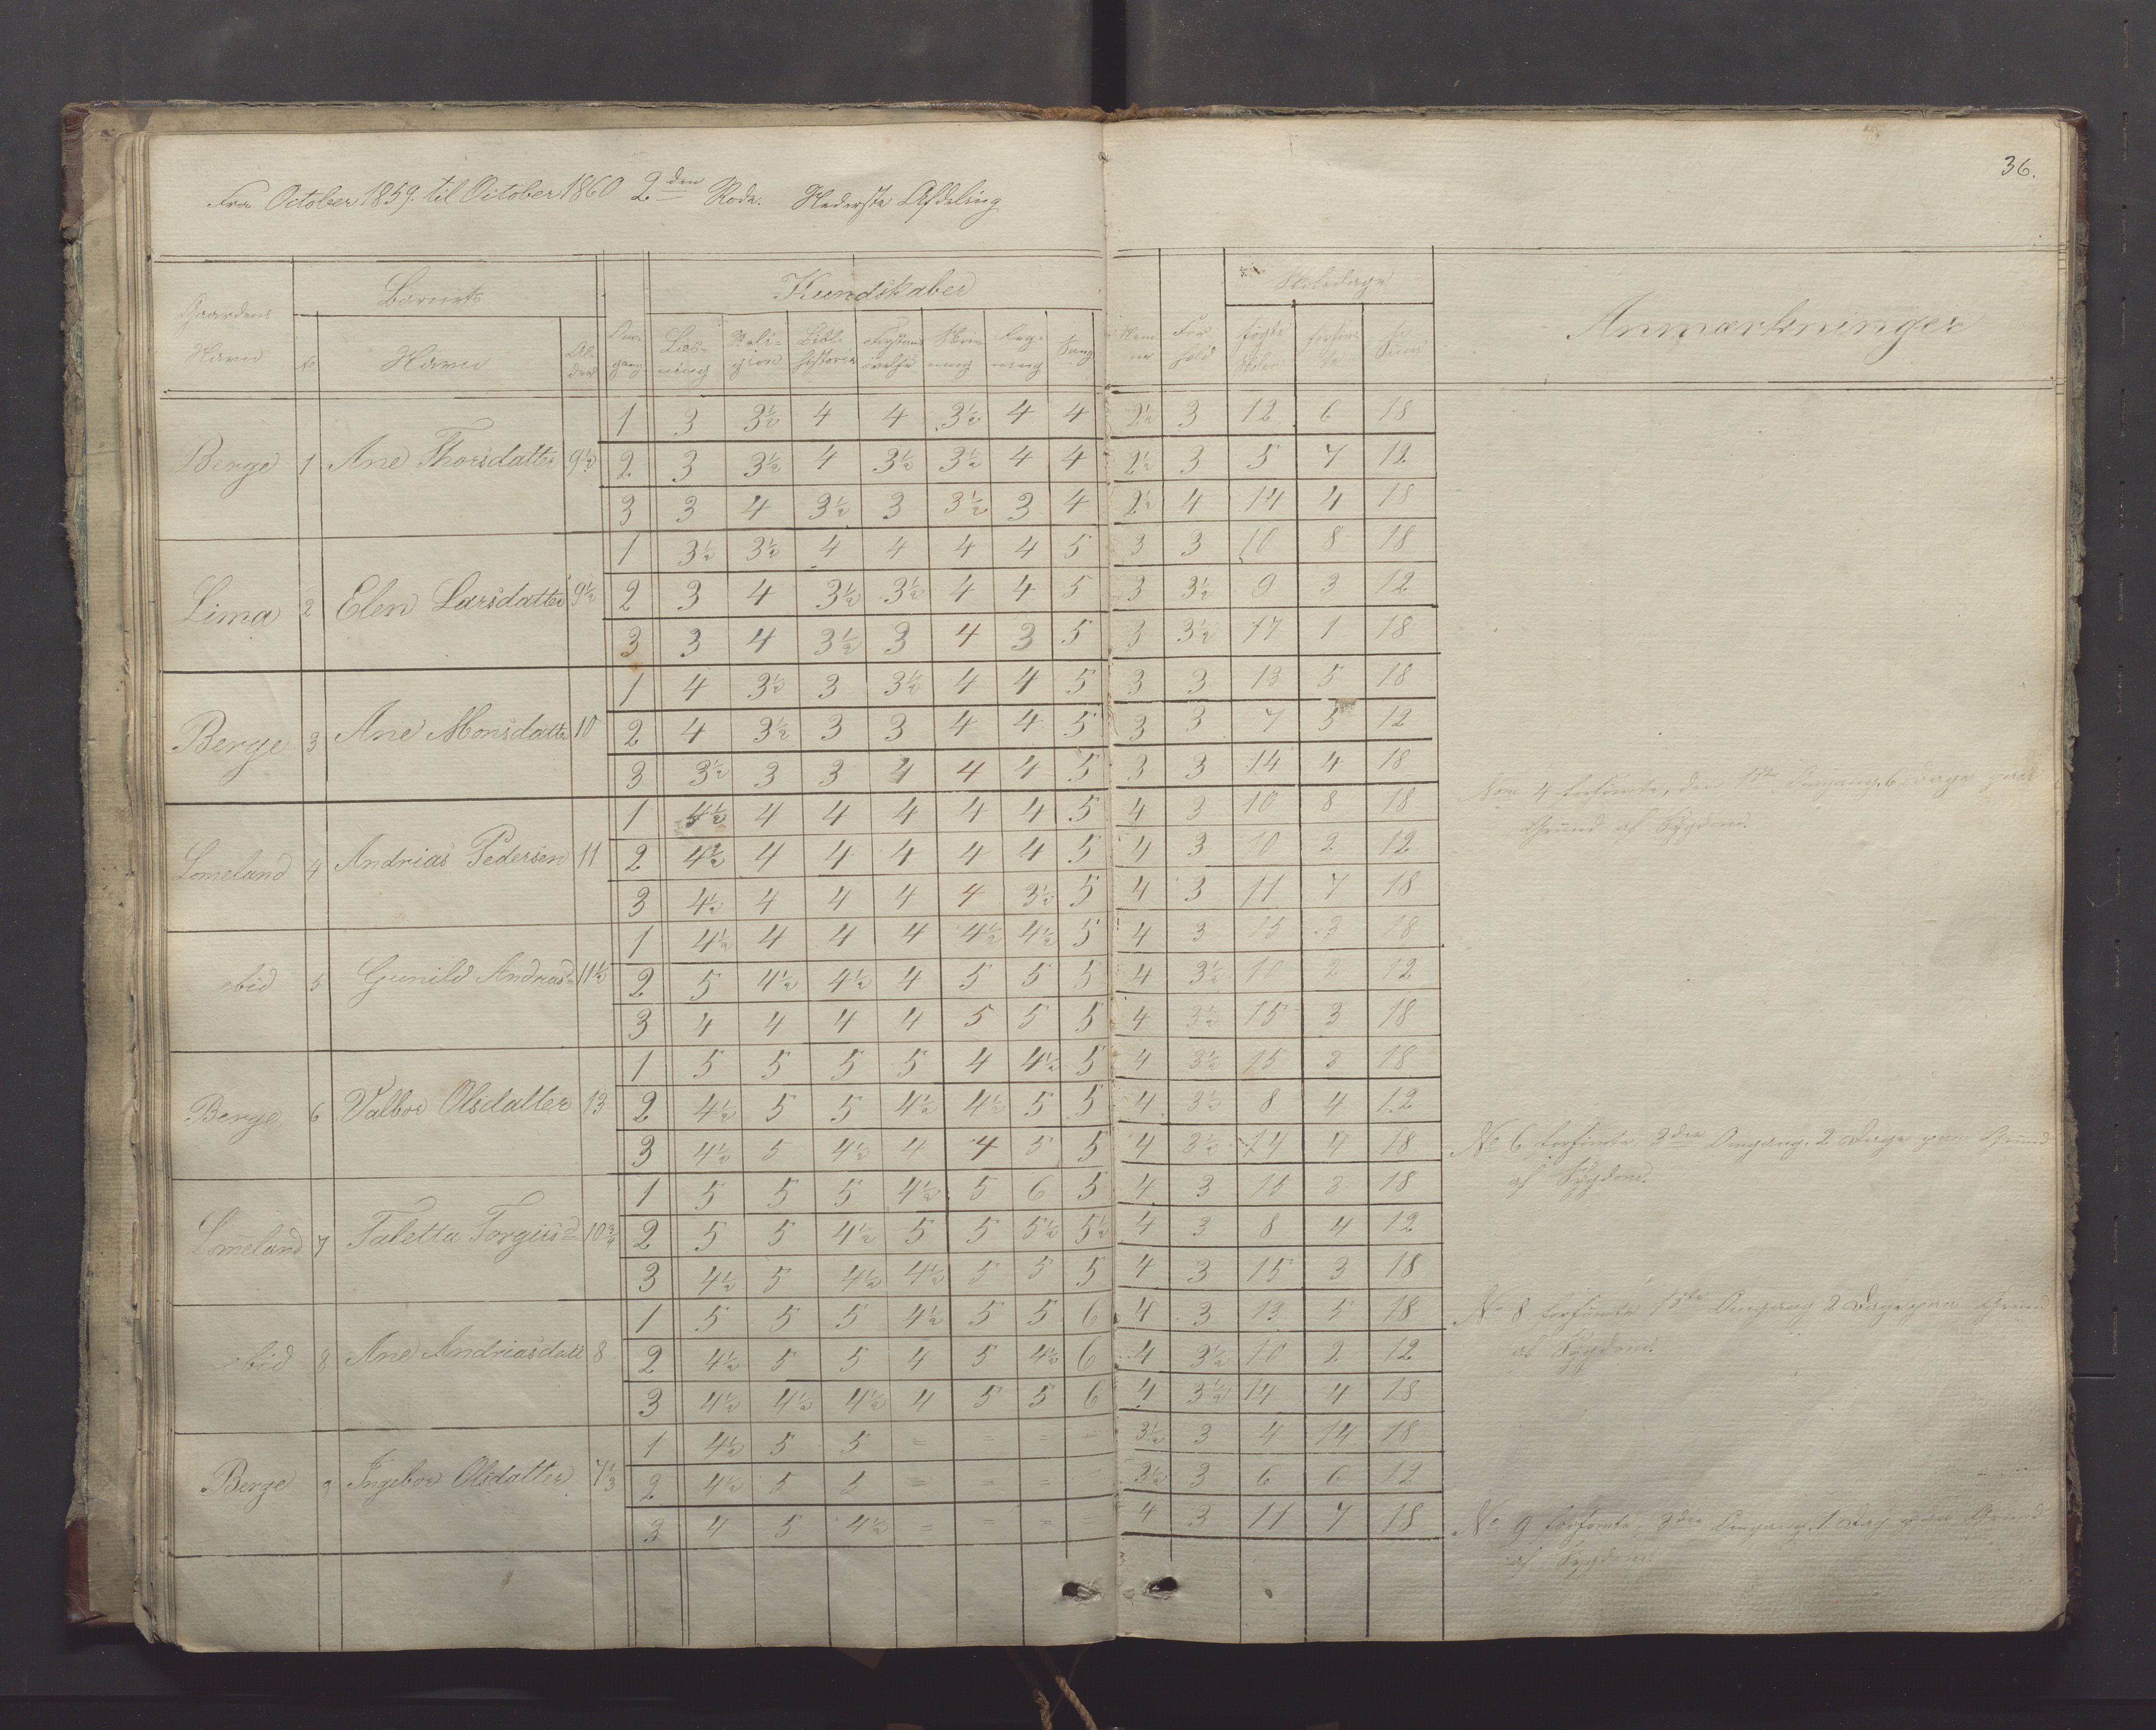 36.
Fra October 1859. til October 1860 2den Rode. Nederste Afdeling
Gaardens Navn | Barnets | Kundskaber | Skoledage | Anmærkninger
No | Navn | Alder | Omgang | Læsning | Religion | Bibl. historie | Skrivning | Regning | Sang | Nemme | Forhold | søgte Skolen | forsømte | Sum
Berge 1 Ane Thorsdatter 9½ 1 3 3½ 4 4 3½ 4 4 2½ 3 12 6 18
2 3 3½ 4 3½ 3½ 4 4 2½ 3 5 7 12
3 3 4 3½ 3 3½ 3 4 2½ 4 14 4 18
Lima 2 Elen Larsdatter 9½ 1 3½ 3½ 4 4 4 4 5 3 3 10 8 18
2 3 4 3½ 3½ 4 4 5 3 3½ 9 3 12
3 3 4 3½ 3 4 3 5 3 3½ 17 1 18
Berge 3 Ane Monsdatte 10 1 4 3½ 3 3½ 4 4 5 3 3 13 5 18
2 4 3½ 3 3 4 4 5 3 3 7 5 12
3 3½ 3 3 4 4 4 5 3 3 14 4 18
Lomeland 4 Andrias Pedersen 11 1 4½ 4 4 4 4 4 5 4 3 10 8 18 4 forsömte, den 1ste Omgang, 6 Dage paa
Grund af Sygdom.
2 4½ 4 4 4 4 4 5 4 3 10 2 12
3 4½ 4 4 4 4 3½ 5 4 3 11 7 18
ibid 5 Gunild Andriasd 11½ 1 4½ 4 4 4 4½ 4½ 5 4 3 15 3 18
2 5 4½ 4½ 4 5 5 5 4 3½ 10 2 12
3 4 4 4 4 5 5 5 4 3½ 15 3 18
Berge 6 Valbor Olsdatter 13 1 5 5 5 5 4 4½ 5 4 3½ 15 3 18
2 4½ 5 5 4½ 4½ 5 5 4 3½ 8 4 12
3 4½ 5 4½ 4 4 5 5 4 3½ 14 4 18 No 6 forsömte, 3die Omgang, 2 Dage paa Grund
af Sygdom.
Lomeland 7 Taletta Torgiisd 10¾ 1 5 5 5 4½ 5 6 5 4 3 15 3 18
2 5 5 4½ 5 5 5½ 5½ 4 3 8 4 12
3 4½ 5 4½ 4½ 5 5 5 4 3 15 3 18
ibid 8 Ane Andriasdatt 8 1 5 5 5 4½ 5 5 6 4 3 13 5 18 No 8 forsömte 1ste Omgang 2 Dage paa Grund
af Sygdom.
2 4½ 5 5 4 5 4½ 6 4 3½ 10 2 12
3 4½ 4½ 4½ 4 5 5 6 4 3½ 14 4 18
Berge 9 Ingebor Olsdatter 7⅓ 1 4½ 5 5 = = = = 3½ 3 4 14 18
2 4½ 5 5 = = = = 3½ 3 6 6 12
3 4 5 4½ = = = 4 3 11 7 18 No 9 forsömte, 3die Omgang, 1 Dag paa Grund
af Sygdom